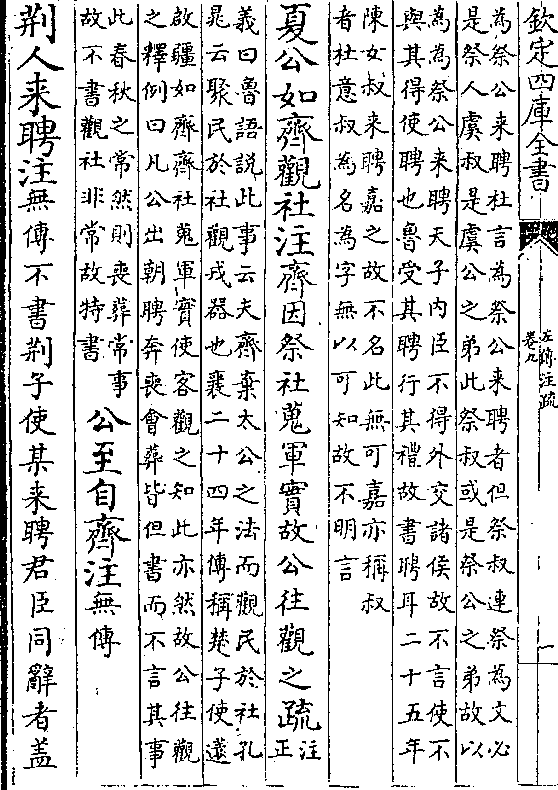 欽定四庫全書
左傳注疏
卷九
一
為祭公来聘杜言為祭公来聘者但祭叔連祭為文必
是祭人虞叔是虞公之弟此祭叔或是祭公之弟故以
為為祭公来聘天子内臣不得外交諸侯故不言使不
與其得使聘也魯受其聘行其禮故書聘耳二十五年
陳女叔来聘嘉之故不名此無可嘉亦稱叔
者杜意叔為名為字無以可知故不明言
夏公如齊觀社注齊因祭社蒐軍實故公往觀之疏注
正
義曰魯語說此事云夫齊棄太公之法而觀民於社孔
晁云聚民於社觀戎器也襄二十四年傳稱楚子使薳
啟疆如齊齊社蒐軍實使客觀之知此亦然故公往觀
之釋例曰凡公出朝聘奔喪會葬皆但書而不言其事
此春秋之常然則喪葬常事
故不書觀社非常故特書
公至自齊注無傳
荆人来聘注無傳不書荆子使某来聘君臣同辭者盖